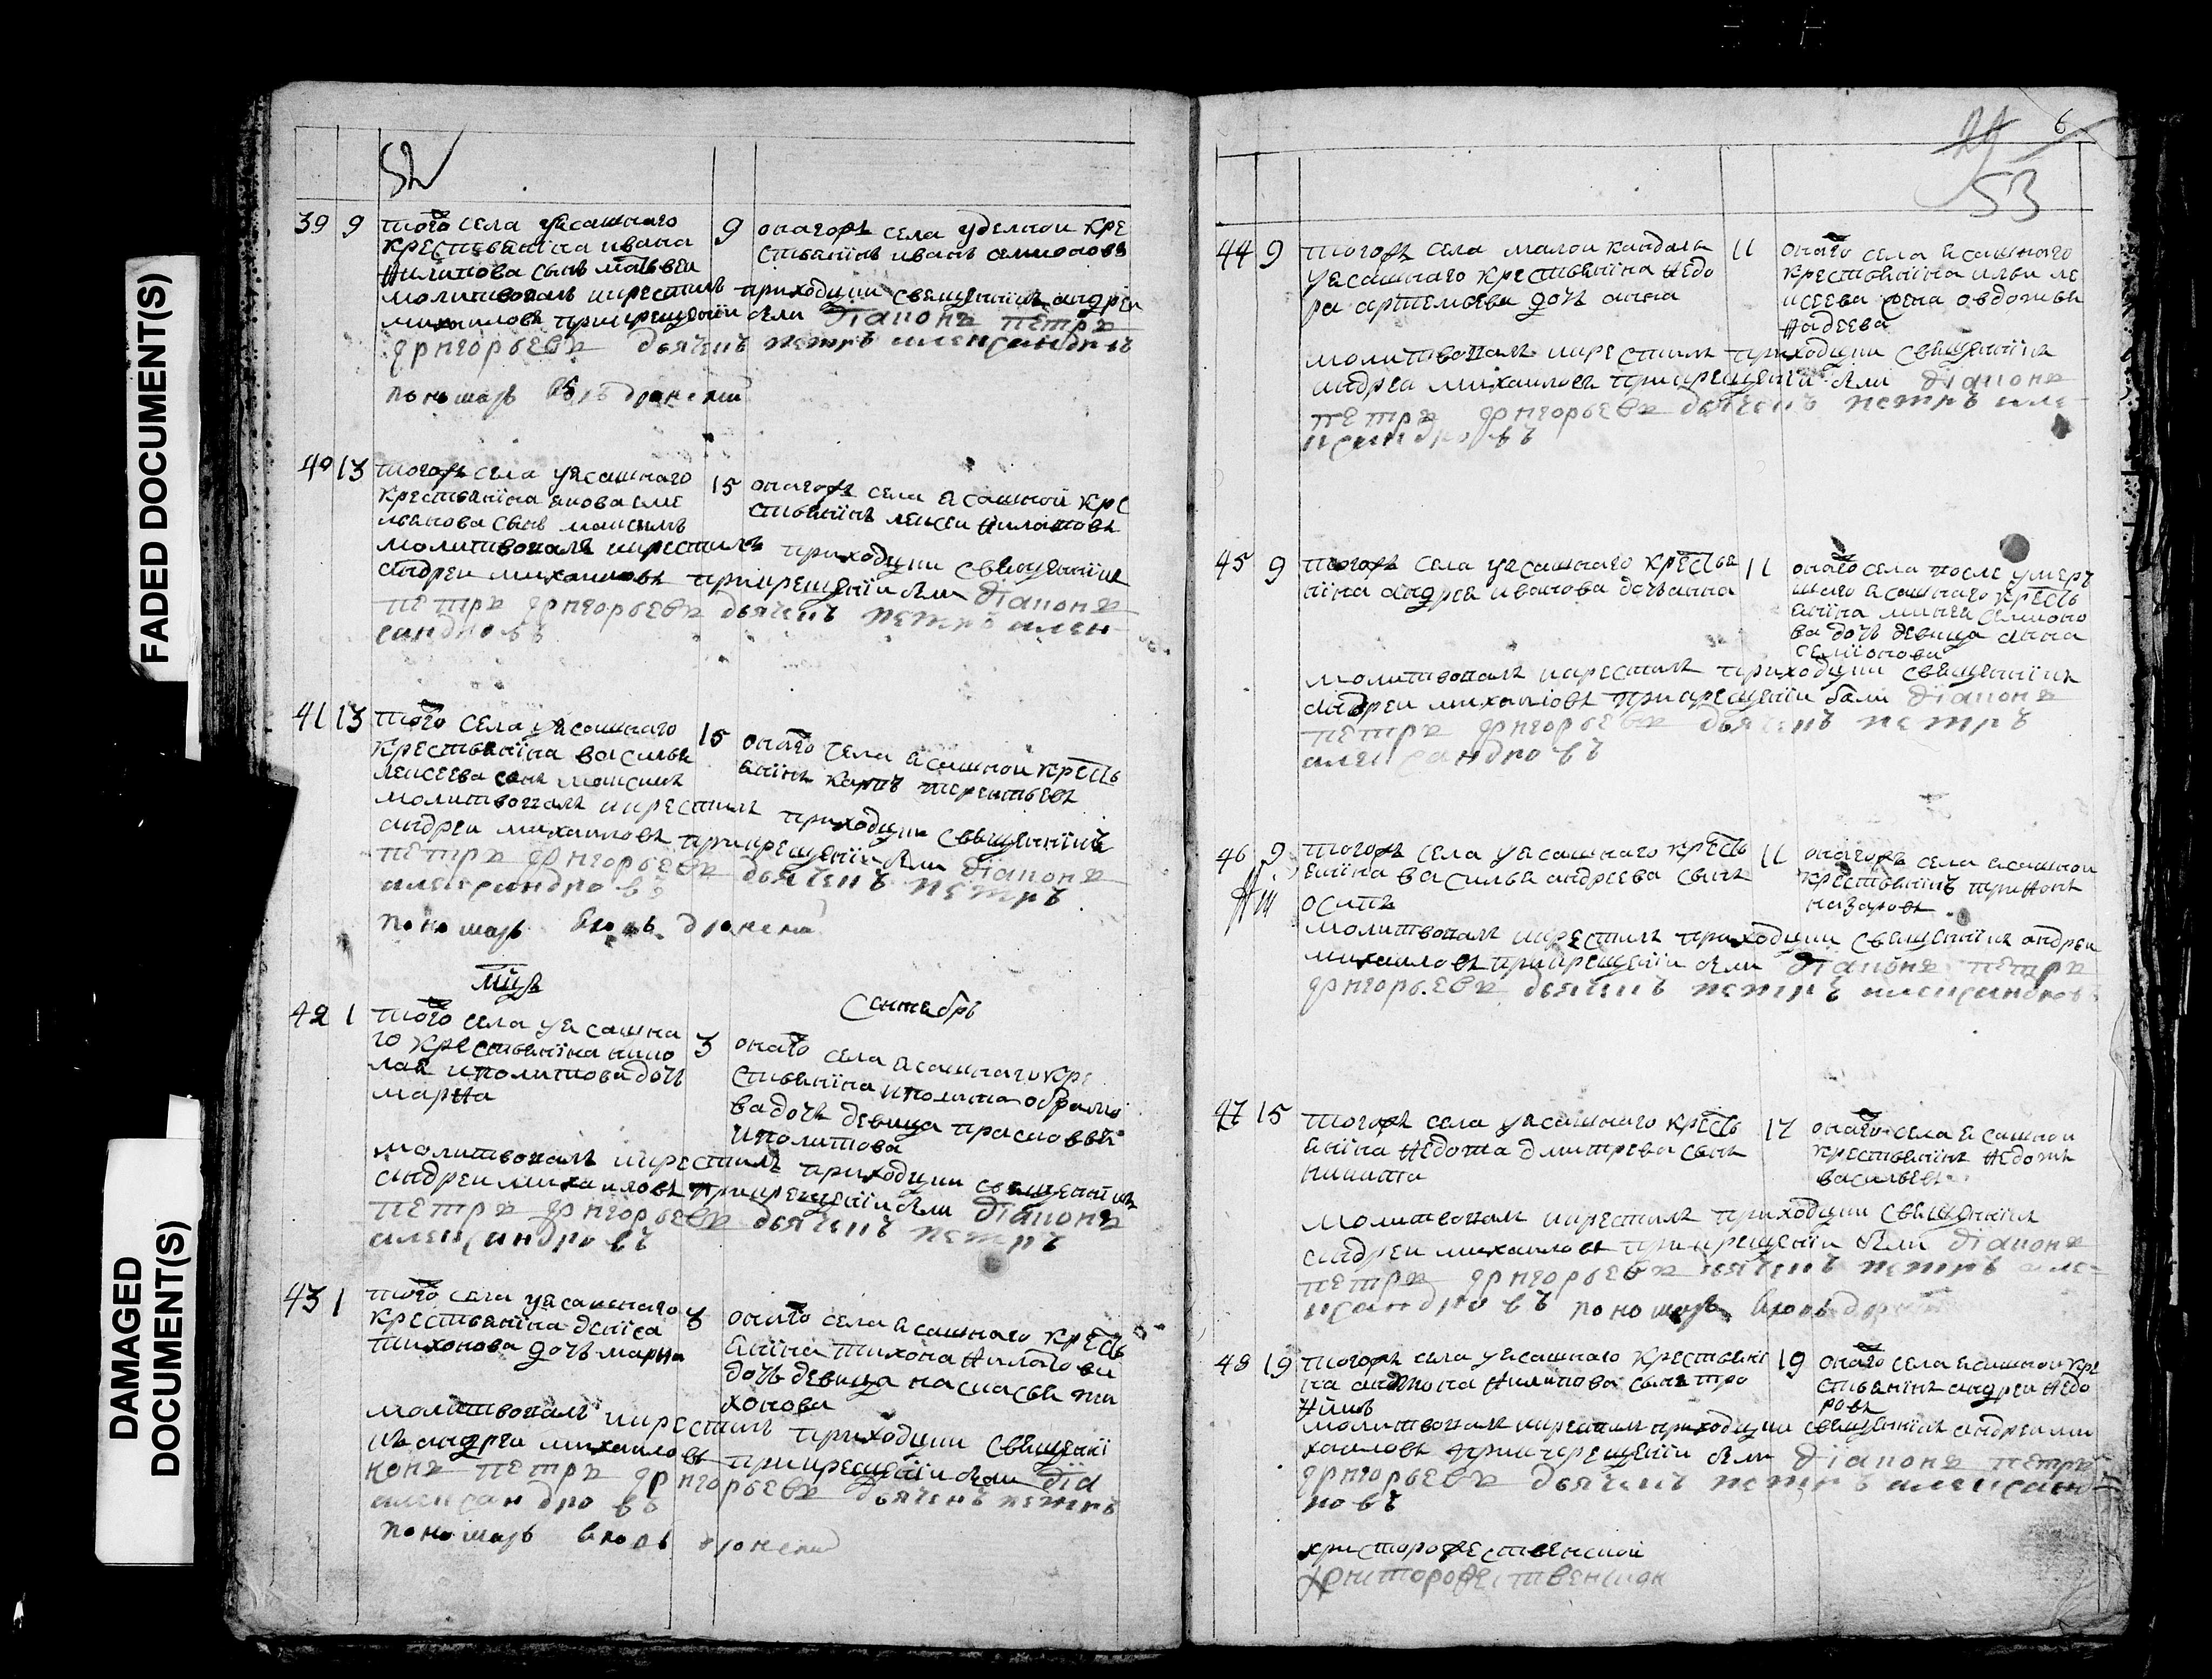 FADED DOCUMENT(S)
DAMAGED
DOCUMENT(S)
52
39 9 того села уясашнаго
крестьянина ивана
Филипова сынъ матьвеи
9 онагожъ села уделнои кре
стьянинъ иванъ семионовъ
молитвовалъ икрестилъ приходцки священникъ андреи
михаиловъ прикрещении были діаконъ петръ
григорьевъ дьячекъ петръ александровъ
пономарь
40 13 тогожъ села уясашнаго
крестьянина якова еме
льянова сынъ максимъ
15 онагожъ села ясашнои кре
стьянинъ лексеи Филатовъ
молитвовалъ икрестилъ приходцки священникъ
андреи михаиловъ прикрещении были діаконъ
петръ григорьевъ дьячекъ петръ алек
сандровъ
41 13 того села уясашнаго
крестьянина василья
лексеева сынъ максимъ
15 онаго села ясашнои кресть
янинъ карпъ терентьевъ
молитвовалъ икрестилъ приходцки священникъ
андреи михаиловъ прикрещении были діаконъ
петръ григорьевъ дьячекъ петръ
александровъ
пономарь
мцъ
Сентебрь
42 1 того села уясашна
го крестьянина нико
лая иполитова дочь
марфа
3 онаго села ясашнаго кре
стьянина иполита
ва дочь девица прасковья
иполитова
молитвовалъ икрестилъ приходцки священникъ
андреи михаиловъ прикрещении были діаконъ
петръ григорьевъ дьячекъ петръ
александровъ
43 1 того села уясашнаго
крестьянина дениса
тихонова дочь марфа
3 онаго села ясашнаго кресть
янина тихона Филатова
дочь девица настасья ти
хонова
молитвовалъ икрестилъ приходцки священни
къ андреи михаиловъ прикрещении были діа
конъ петръ григорьевъ дьячекъ петръ
александровъ
пономарь
6
53
44 9 тогожъ села малои кандалы
уясашнаго крестьянина Федо
ра артемьева дочь анна
11 онаго села ясашнаго
крестьянина ильи ле
ксеева жена овдотья
Фадеева
молитвовалъ икрестилъ приходцки священникъ
андреи михаиловъ прикрещении были діаконъ
петръ григорьевъ дьячекъ петръ але
ксандровъ
45 9 тогожъ села уясашнаго крестья
нина андрея иванова дочь анна
11 онаго села после умерь
шаго ясашнаго кресть
янина минея семионо
ва дочь девица анна
семионова
молитвовалъ икрестилъ приходцки священникъ
андреи михаиловъ прикрещении были діаконъ
петръ григорьевъ дьячекъ петръ
александровъ
46 9 тогожъ села уясашнаго кресть
янина василья андреева сынъ
осипъ
11 онагожъ села ясашнои
крестьянинъ триФонъ
назаровъ
молитвовалъ икрестилъ приходцки священникъ андреи
михаиловъ прикрещении были діаконъ петръ
григорьевъ дьячекъ петръ александровъ
47 15 тогожъ села уясашнаго кресть
янина Федота дмитрева сынъ
никита
17 онаго села ясашнои
крестьянинъ Федотъ
васильевъ
молитвовалъ икрестилъ приходцки священникъ
андреи михаиловъ прикрещении были діаконъ
петръ григорьевъ дьячекъ петръ але
ксандровъ пономарь
48 19 тогожъ села уясашнаго крестьяни
на Филипова сынъ тро
Фимъ
19 онаго села ясашнои кре
стьянинъ андреи Федо
ровъ
молитвовалъ икрестилъ приходцки священникъ андреи ми
хаиловъ прикрещении были діаконъ петръ
григорьевъ дьячекъ петръ александ
ровъ
христорожественской
христорожественскои